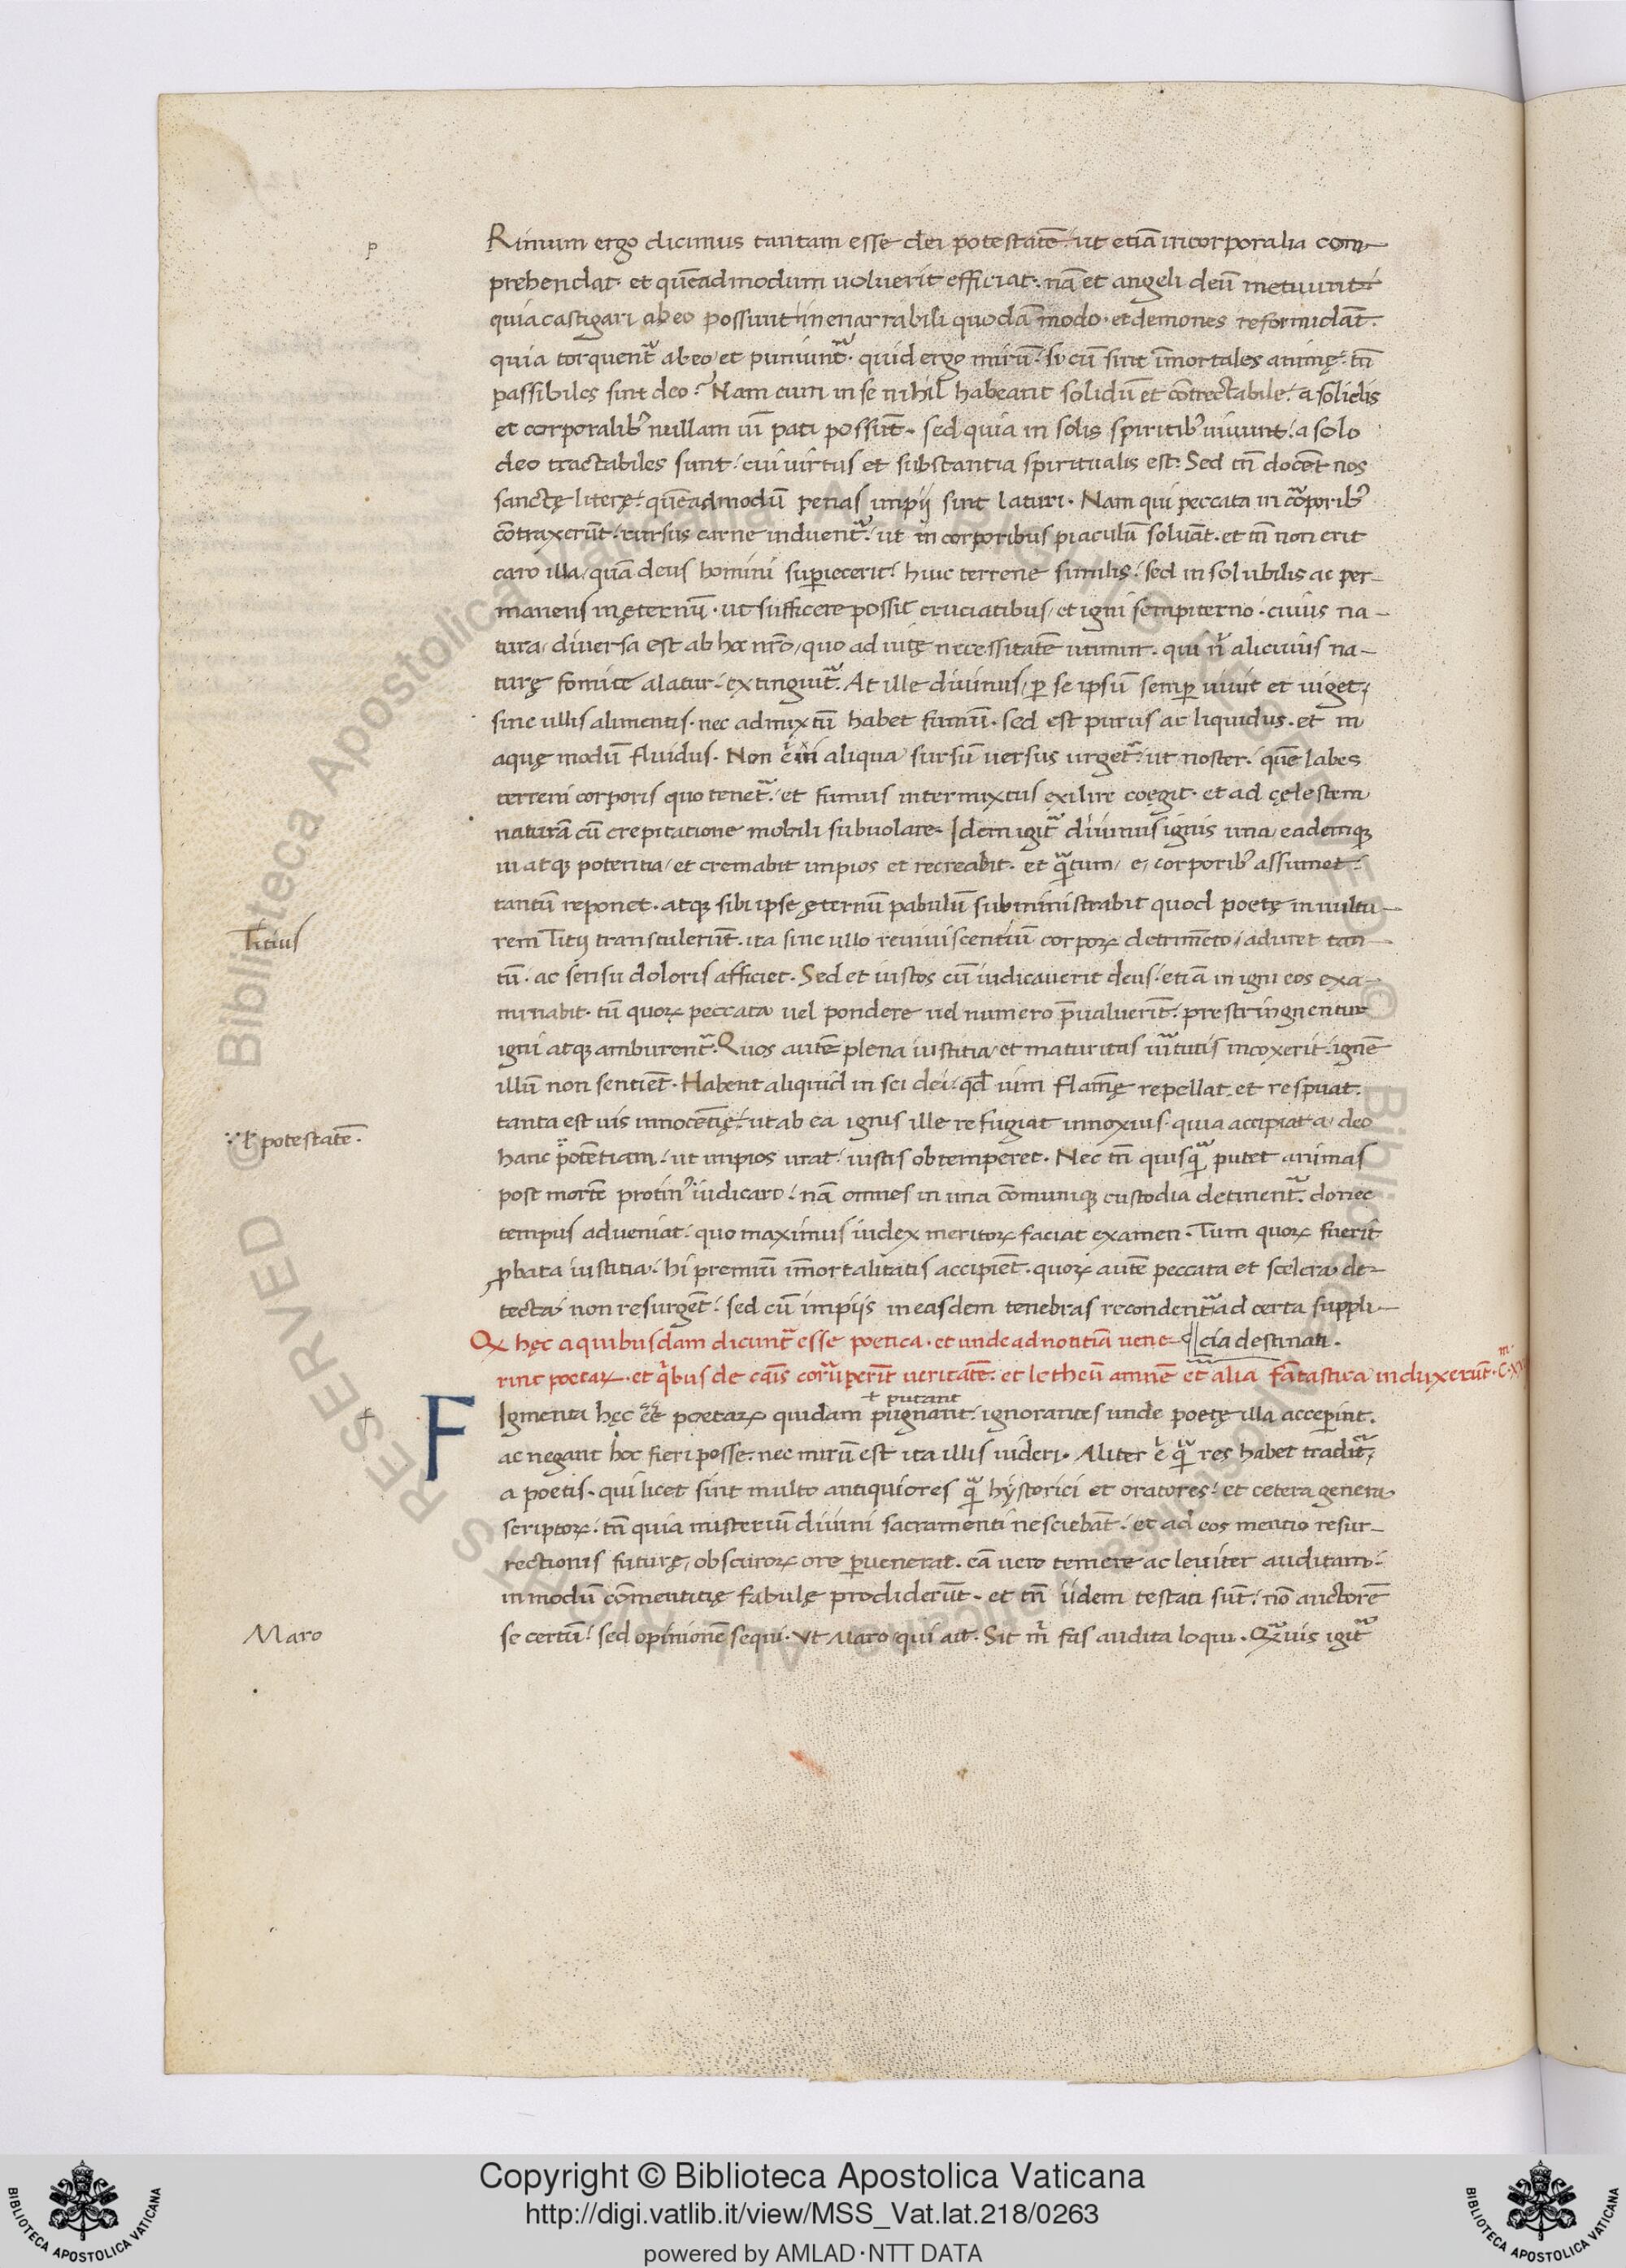 p
Rimum ergo dicimus tantam esse dei potestatē· ut etiā incorporalia com-
prehendat· et quēadmodum uoluerit efficiat· nā et angeli deū metuunt·
quia castigari ab eo possunt inenarrabili quodā modo· et demones reformidāt·
quia torquent᷑ ab eo/ et puniunt᷑· quid ergo mirū· si cū sint īmortales animę· tn̄
passibiles sint deo? Nam cum in se nihil habeant solidū et cōtrectabile· a solidis
et corporalib⁹ nullam uī pati possūt· sed quia in solis spiritib⁹ uiuunt· a solo
deo tractabiles sunt· cui uirtus et substantia spiritualis est· Sed tn̄ docēt nos
sanctę literę· quēadmodū penas impij sint laturi· Nam qui peccata in corporib⁹
cōtraxerūt· rursus carne induent᷑· ut in corporibus piaculū soluāt· et tn̄ non erit
caro illa/ quā deus homini superiecerit· huic terrene similis· sed insolubilis ac per-
manens in ęternū· ut sufficere possit cruciatibus/ et igni sempiterno· cuius na-
tura/ diuersa est ab hoc nr̄o/ quo ad uitę necessitatē utimur· qui n̄ alicuius na-
turę fomite alatur· extinguit᷑· At ille diuinus/ ꝑ se ipsū semꝑ uiuit et uiget/
sine ullis alimentis· nec admixtū habet fumū· sed est purus ac liquidus· et in
aquę modū fluidus· Non .n. ui aliqua sursū uersus urget᷑· ut noster· quē labes
terreni corporis quo tenet᷑· et fumus intermixtus exilire coegit· et ad cęlestem
naturā cū crepitatione mobili subuolare· Idem igit᷑ diuinus ignis una/ eademqꝫ
ui atqꝫ potentia/ et cremabit impios et recreabit· et qᷓtum/ e/ corporib⁹ assumet·
tantū reponet· atqꝫ sibi ipse ęternū pabulū subministrabit quod poetę in uultu-
Titius
rem Titij transtulerūt· ita sine ullo reuiuiscentiū corporꝝ detrimēto/ aduret tan-
tū· ac sensu doloris afficiet· Sed et iustos cū iudicauerit deus· etiā in igni eos exa-
minabit· tū quorꝝ peccata uel pondere uel numero p̄ualuerīt· prestringuentur
igni atqꝫ amburent᷑· Quos autē plena iustitia/ et maturitas uirtutis incoxerit· ignē
illū non sentiēt· Habent aliquid in sei dei· qd̄ uim flamę repellat· et respuat·
tanta est uis innocētię· ut ab ea ignis ille refugiat innoxius· quia accipiat a/ deo
∵ ł potestatē·
hanc potētiam· ut impios urat· iustis obtemperet· Nec tn̄ quisqᷓ putet animas
post mortē protin⁹ iudicari· nā omnes in una cōmuniqꝫ custodia detinent᷑· donec
tempus adueniat· quo maximus iudex meritorꝝ faciat examen· Tum quorꝝ fuerit
ꝓbata iustitia· hi premiū īmortalitatis accipiēt· quorꝝ autē peccata et scelera de-
tecta· non resurgēt· sed cū impijs in easdem tenebras recondent᷑ ad certa suppli-
Qꝫ hęc a quibusdam dicunt᷑ esse poetica· et unde ad notitiā uene- cia destinati·
rint poetarꝝ· et qͥbus de cāis corruperīt ueritatē· et letheū amnē et alia fātastica induxerūt·
+
+ putant
FIgmenta hęc eē poetarꝝ quidam pugnant· ignorantes unde poetę illa acceperint·
ac negant hoc fieri posse· nec mirū est ita illis uideri· Aliter .e. qᷓ res habet tradit᷑/
a poetis· qui licet sint multo antiquiores qᷓ hystorici et oratores· et cetera genera
scriptorꝝ· tn̄ quia misteriū diuini sacramenti nesciebāt· et ad eos mentio resur-
rectionis futurę/ obscurorꝝ ore ꝑuenerat· eā uero temere ac leuiter auditam·
in modū cōmentitię fabulę prodiderūt· et tn̄ ijdem testati sūt· nō auctorē
Maro
se certū· sed opinionē sequi· Vt Maro qui ait· Sit m̄ fas audita loqui· Qᷓuis igit᷑
Copyright © Biblioteca Apostolica Vaticana
http://digi.vatlib.it/view/MSS_Vat.lat.218/0263
powered by AMLAD·NTT DATA